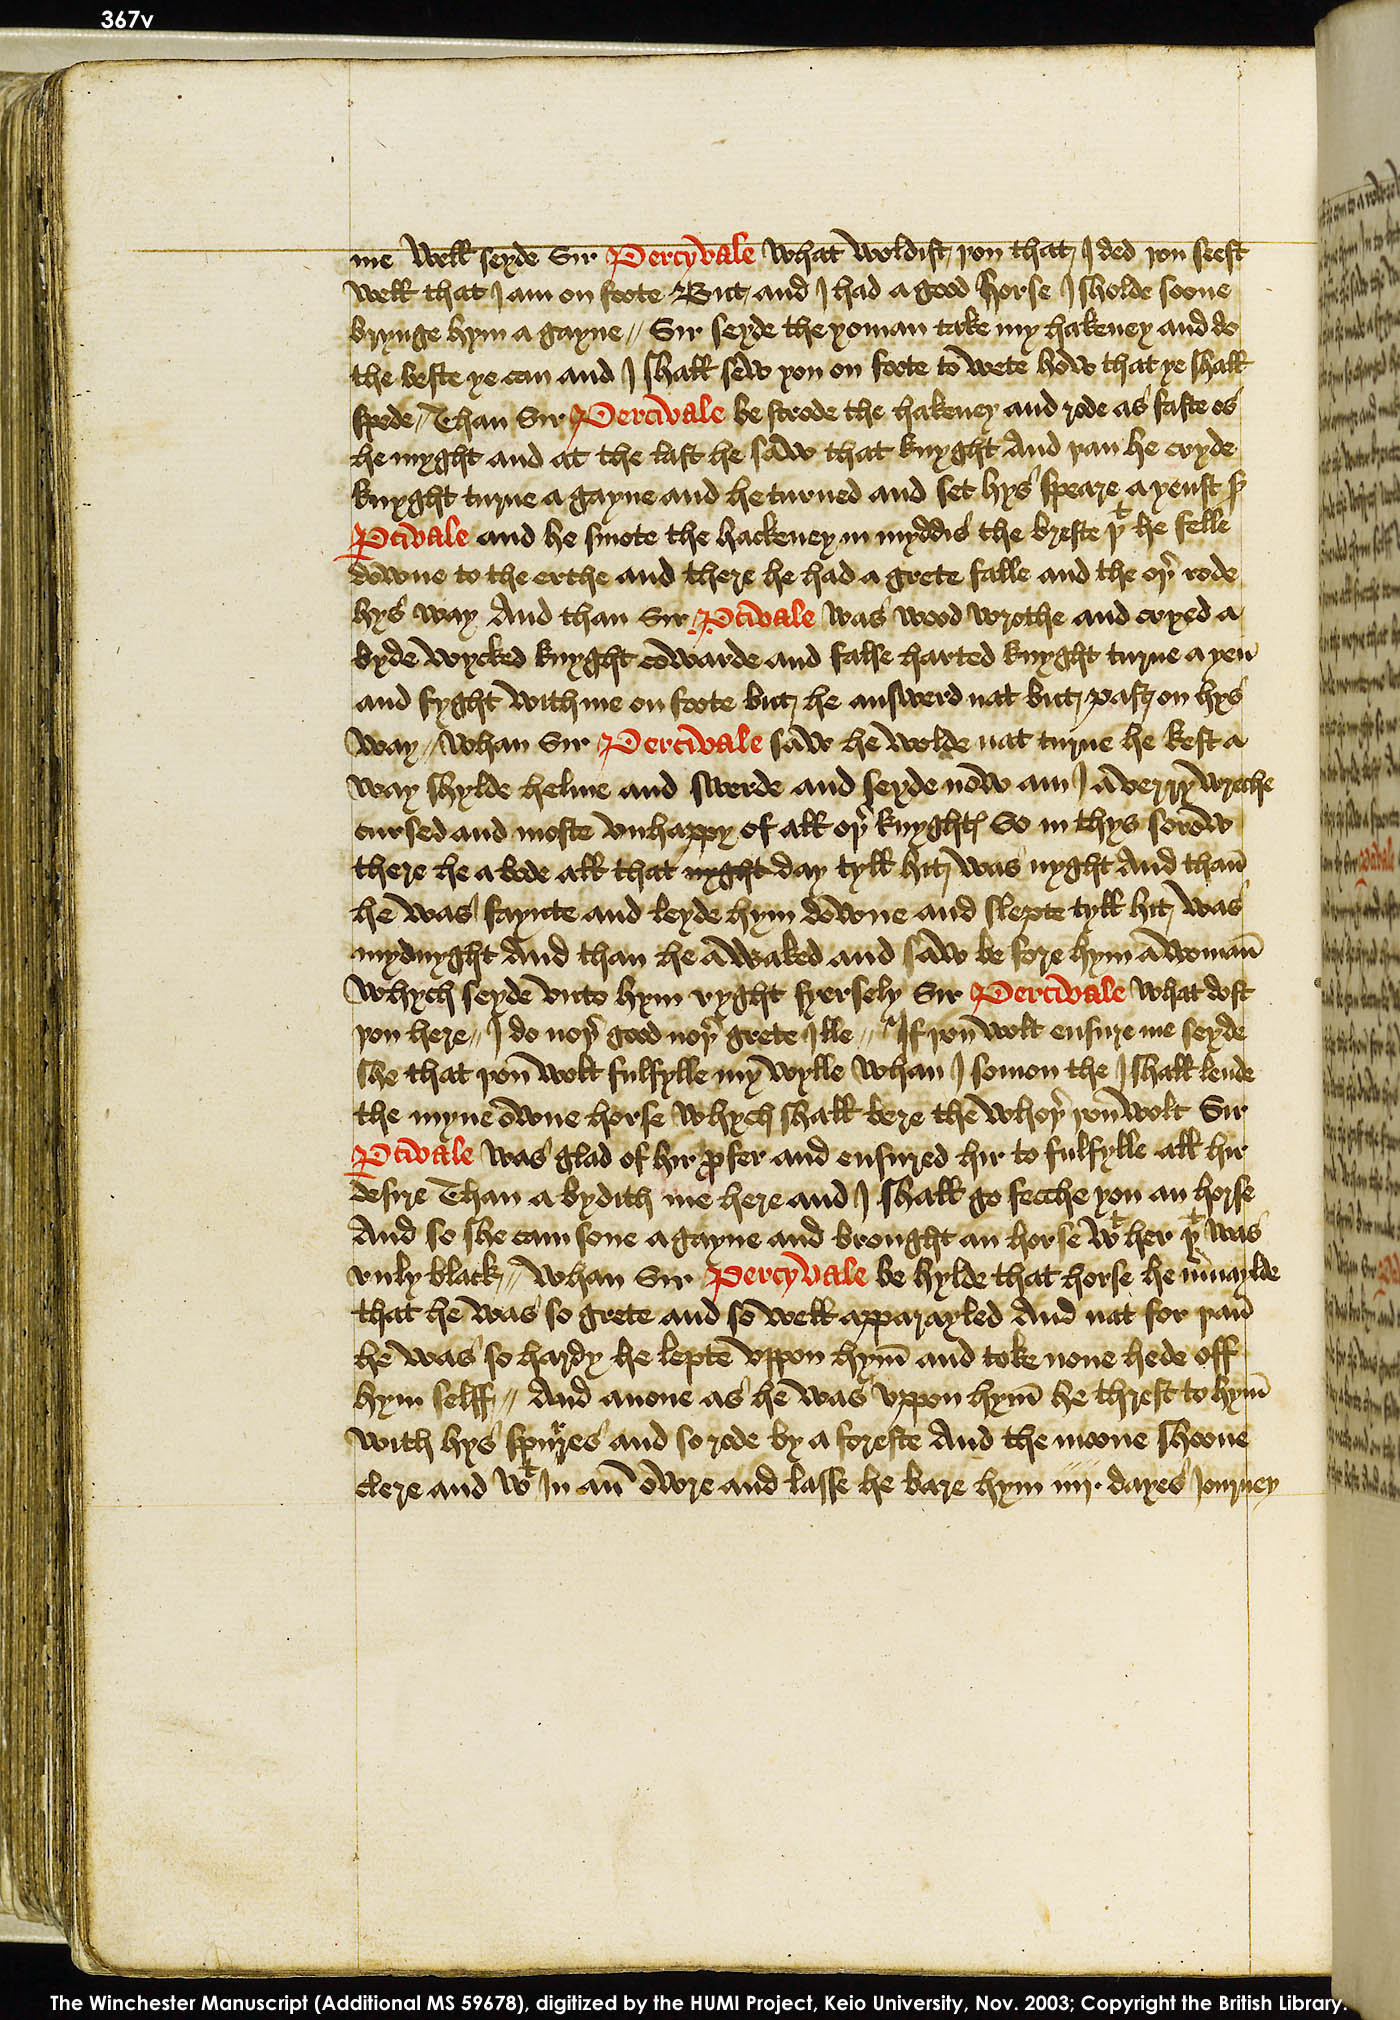 367v
me Well seyde Sir Percyvale What woldist þou that I ded þou seest
well that I am on foote But and I had a good horse I sholde soone
brynge hym a gayne // Sir seyde the yoman take my hakeney and do
the beste ye can and I shall sew you on foote to wete how that ye shall
spede / Than Sir Percivale be strode the hakeney and rode as faste as
he myght and at the last he saw that knyght And þan he cryde
knyght turne a gayne and he turned and set hys speare a yenst sr
Pcivale and he smote the hackeney in myddis the breste þt he felle
downe to the erthe and there he had a grete falle and the oþr rode
hys way And than Sir Pcivale was wood wrothe and cryed a
byde wycked knyght cowarde and false harted knyght turne a yen
and fyght with me on foote but he answerd nat but past on hys
way // Whan Sir Percivale saw he wolde nat turne he kest a
way shylde helme and swerde and seyde now am I a verry wreche
cursed and moste vnhappy of all oþr knyghtes So in thys sorow
there he a bode all that nyght day tyll hit was nyght And than
he was faynte and leyde hym downe and slepte tyll hit was
mydnyght And than he a waked and saw be fore hym a woman
whych seyde vnto hym ryght fyersely Sir Percivale what dost
þou here // I do noþr good noþr grete Ille // If þou wolt ensure me seyde
she that þou wolt fulfylle my wylle whan I somon the I shall lende
the myne owne horse whych shall bere the whoþr þou wolt Sir
Pcivale was glad of hir pfer and ensured hir to fulfylle all hir
desire Than a bydith me here and I shall go fecche you an horse
And so she cam sone a gayne and brought an horse wt her þt was
inly black // Whan Sir Percyvale be hylde that horse he mvaylde
that he was so grete and so well apparayled And nat for þan
he was so hardy he lepte vppon hym and toke none hede off
hym selff // And anone as he was vppon hym he threst to hym
with hys spurres and so rode by a foreste And the moone shoone
clere and wt In an owre and lasse he bare hym iiij dayes Iourney
The Winchester Manuscript (Additional MS 59678), digitized by the HUMI Project, Keio University, Nov. 2003; Copyright the British Library.